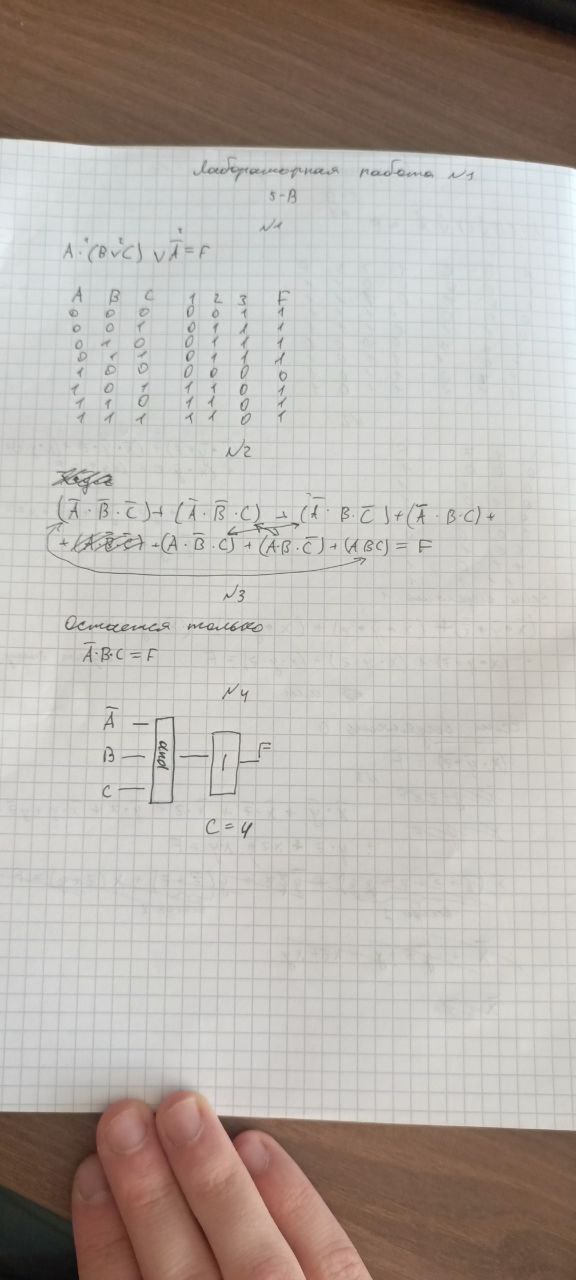 Лабораторная работа №1
5-В
№1
A · (B ∨ C) ∨ A̅ = F
A B C 1 2 3 F
0 0 0 0 0 1 1
0 0 1 0 1 1 1
0 1 0 0 1 1 1
0 1 1 0 1 1 1
1 0 0 0 0 0 0
1 0 1 1 1 0 1
1 1 0 1 1 0 1
1 1 1 1 1 0 1
№2
(A̅ · B̅ · C̅) + (A̅ · B̅ · C) + (A̅ · B · C̅) + (A̅ · B · C) +
+ (A · B̅ · C) + (A · B · C̅) + (A B C) = F
№3
Остается только
A̅ · B · C = F
№4
A̅
B
C
and
1
F
C = 4